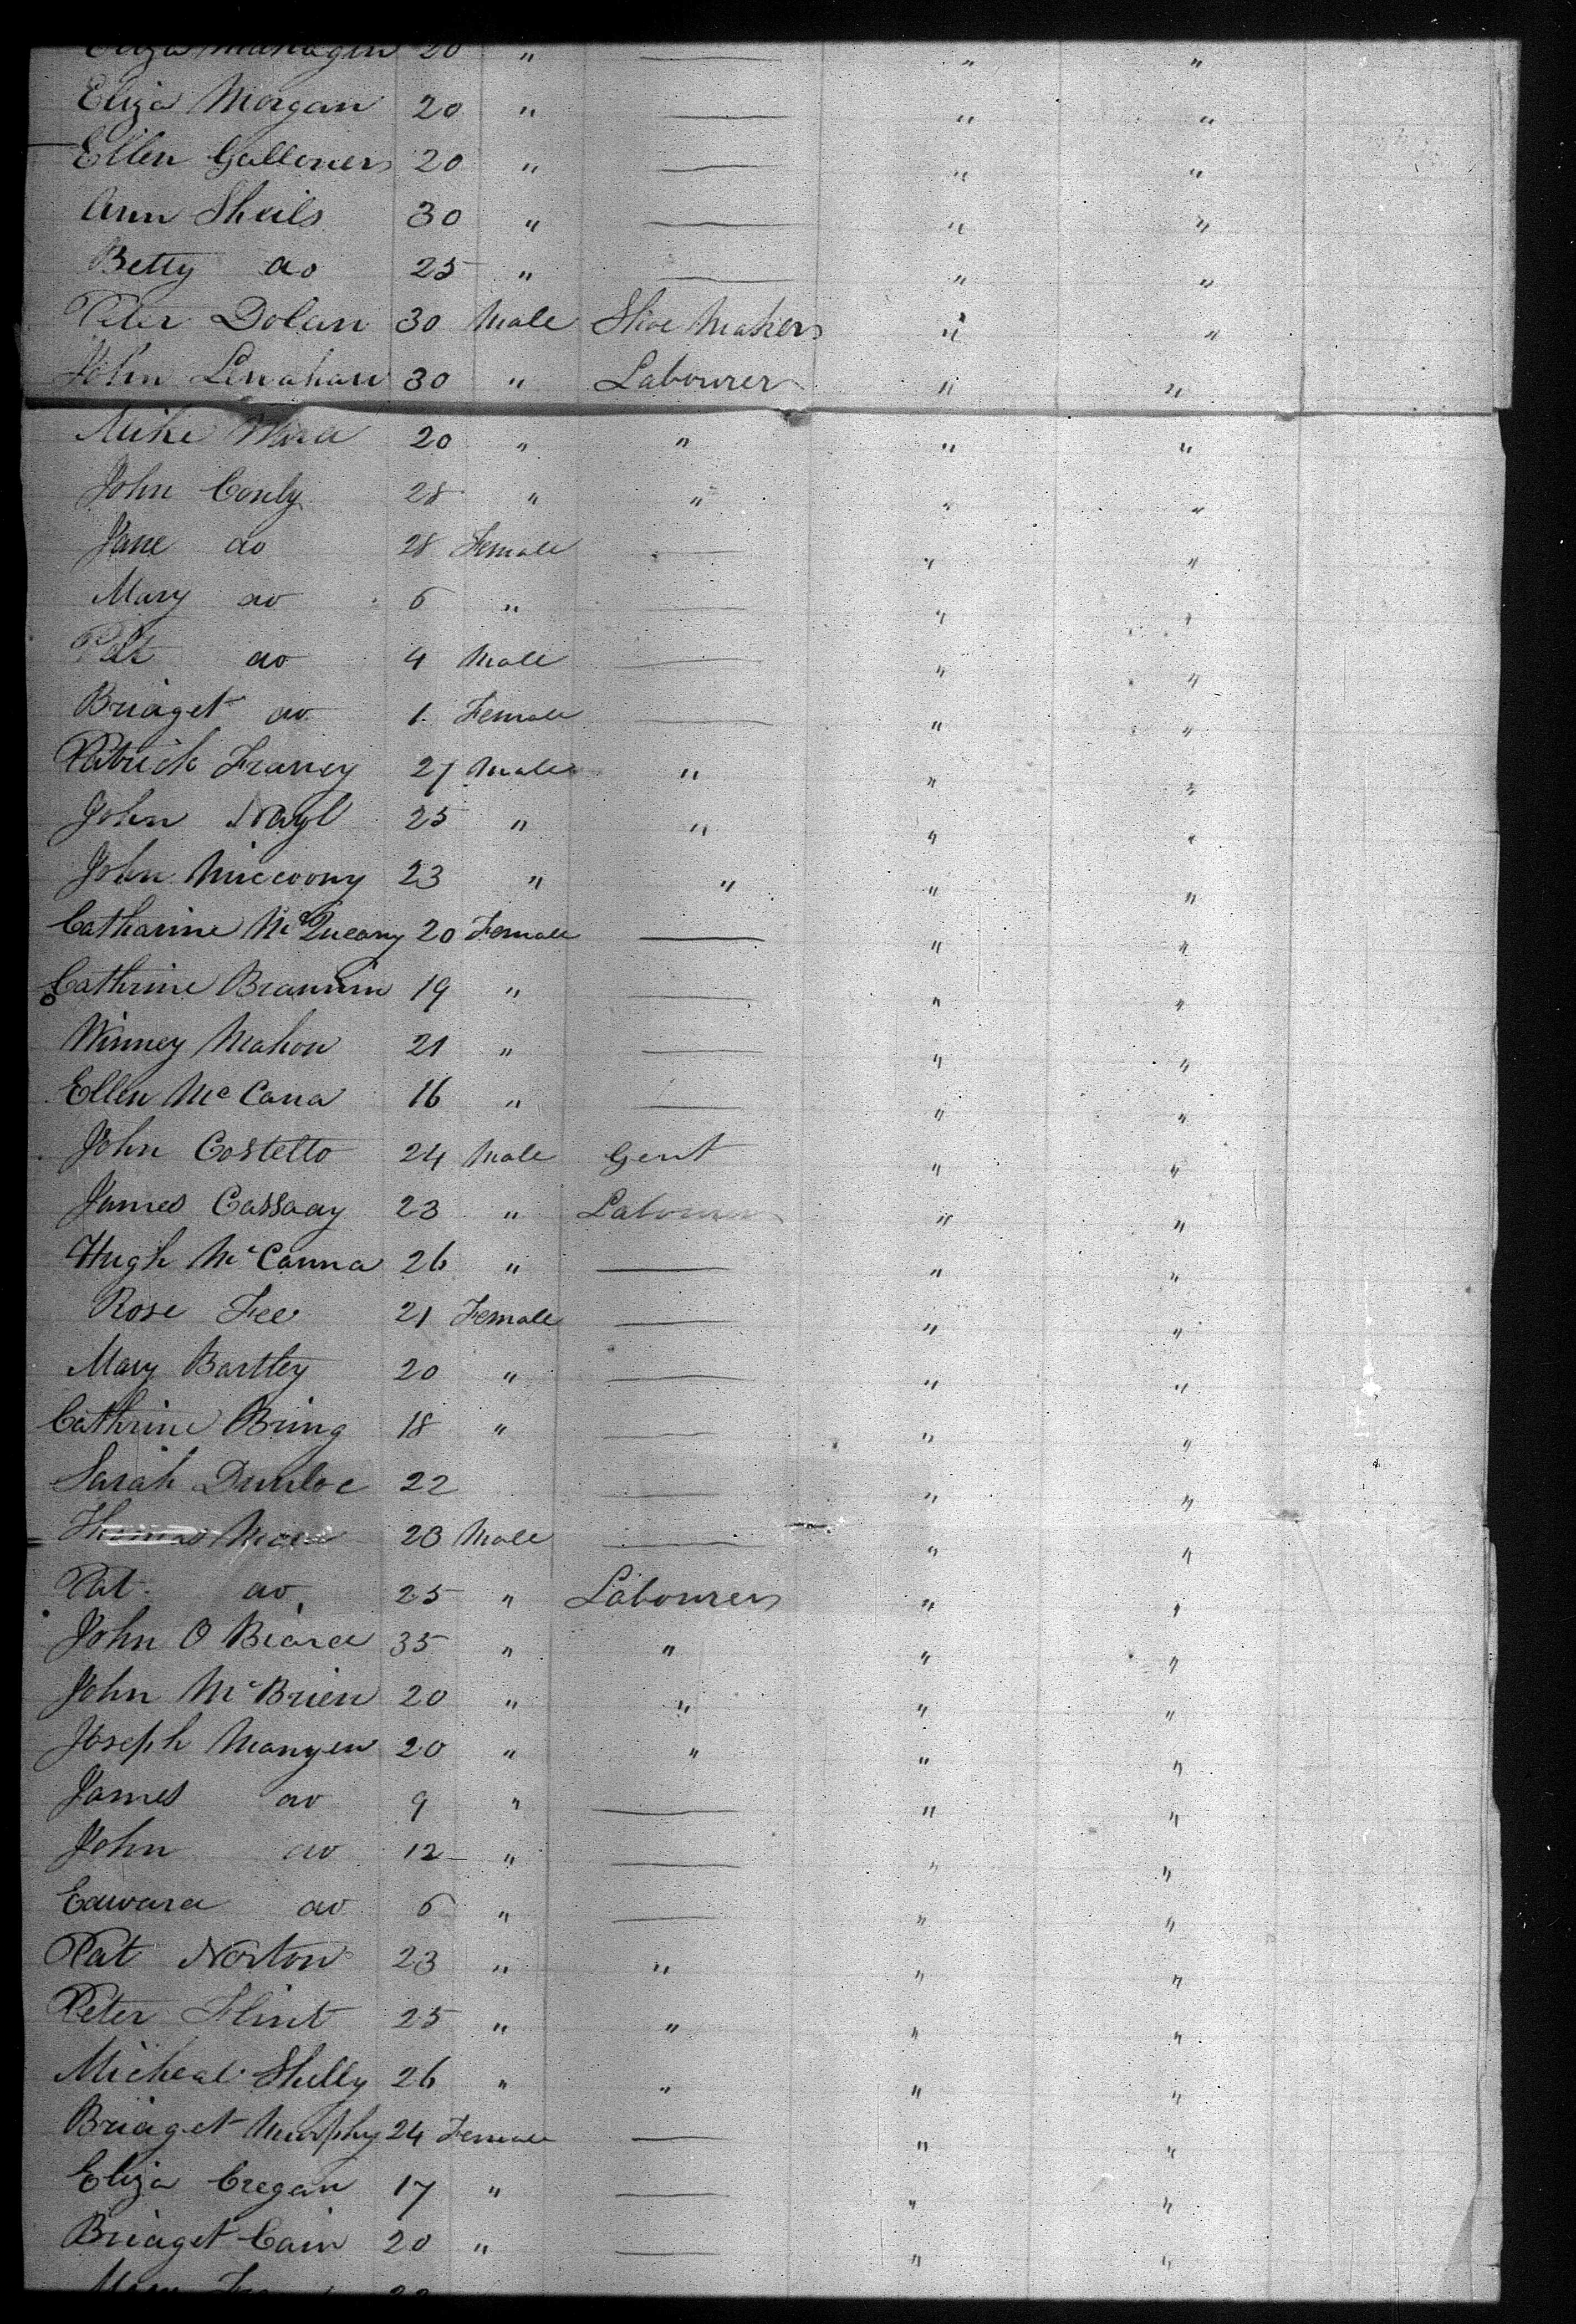 Eliza Managin 20 " — " "
Eliza Morgan 20 " — " "
Ellen Galleners 20 " — " "
Ann Sheils 30 " — " "
Betty do 25 " — " "
Peter Dolan 30 Male Shoe Maker " "
John Lenahan 30 " Labourer " "
Mike Ward 20 " " " "
John Conly 28 " " " "
Jane do 28 Female — " "
Mary do 6 " — " "
Pat do 4 Male — " "
Bridget do 1 Female — " "
Patrick Franey 27 Male " " "
John Nayl 25 " " " "
John Miccoony 23 " " " "
Catharine McQueany 20 Female — " "
Cathrine Brannin 19 " — " "
Winney Mahon 21 " — " "
Ellen McCana 16 " — " "
John Costello 24 Male Gent " "
James Cassday 23 " Labourer " "
Hugh McCanna 26 " — " "
Rose Fee 21 Female — " "
Mary Bartley 20 " — " "
Cathrine Bring 18 " — " "
Sarah Dunloe 22 — " "
Thomas 23 Male — " "
Pat do 25 " Labourer " "
John O Beard 35 " " " "
John McBrien 20 " " " "
Joseph Mangen 20 " " " "
James do 9 " — " "
John do 12 " — " "
Edward do 6 " — " "
Pat Norton 23 " " " "
Peter Flint 25 " " " "
Micheal Shelly 26 " " " "
Bridget Murphy 24 Female — " "
Eliza Cregan 17 " — " "
Bridget Cain 20 " — " "
Mary 22